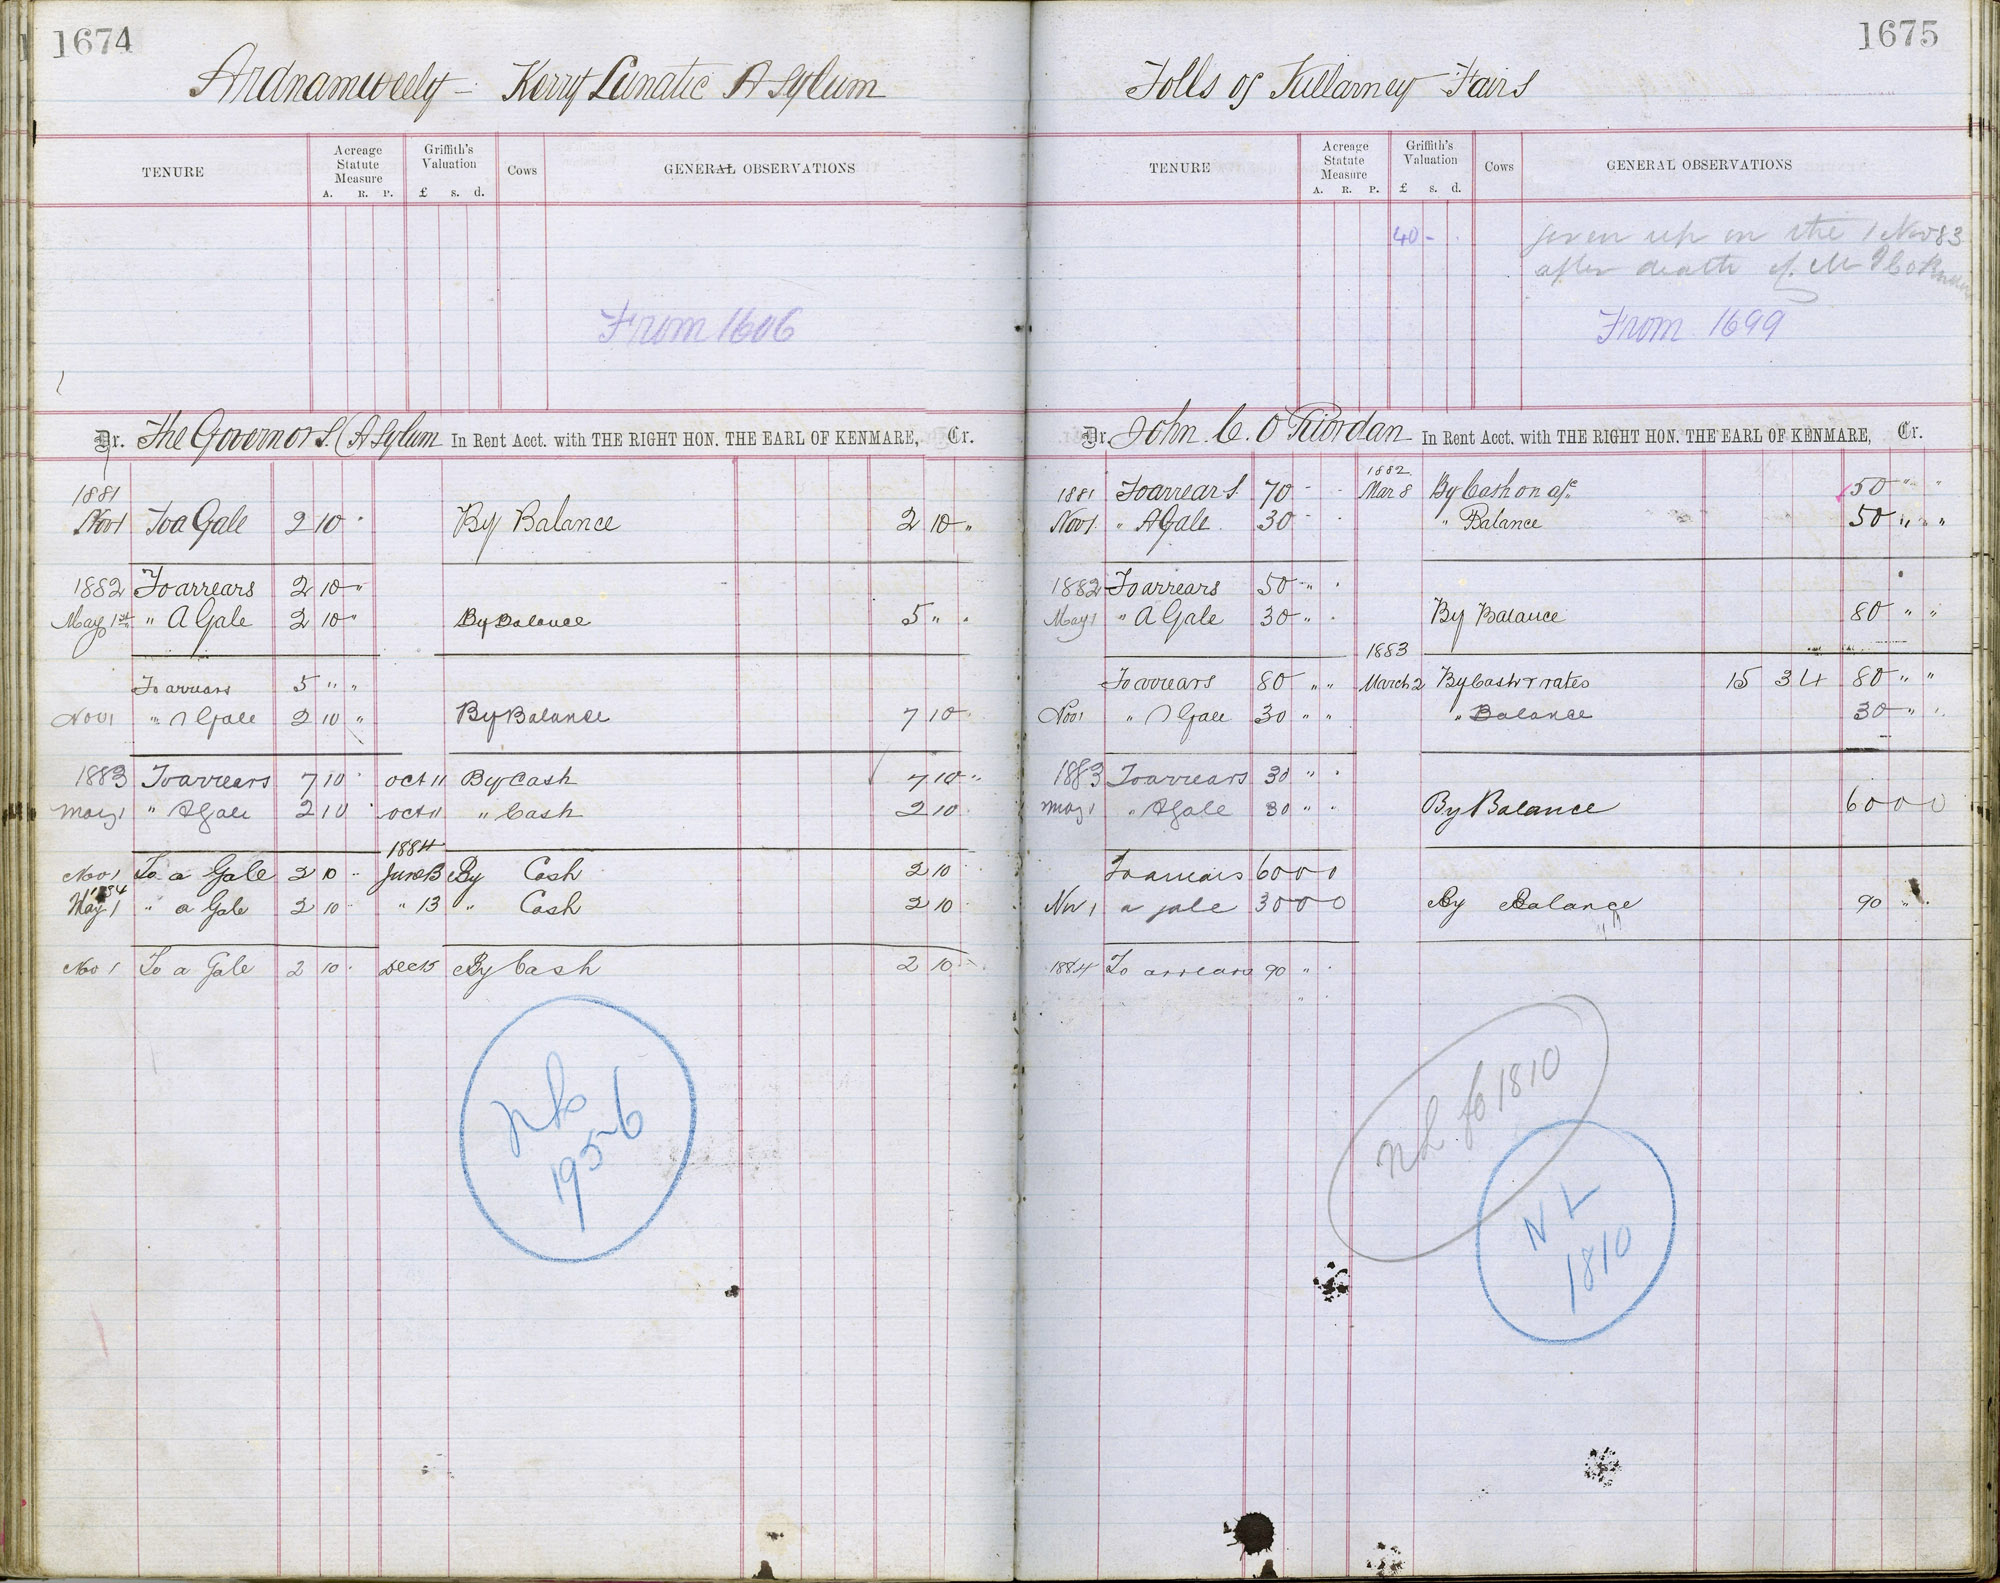 1674
Ardnamweely - Kerry Lunatic Asylum
TENURE
Acreage Statute Measure
A. R. P.
Griffith's Valuation
£ s. d.
Cows
GENERAL OBSERVATIONS
From 1606
Dr. The Governors (Asylum In Rent Acct. with THE RIGHT HON. THE EARL OF KENMARE, Cr.
1881
Nov 1 To a Gale 2 10 " By Balance 2 10 "
1882 To arrears 2 10 "
May 1st " A Gale 2 10 " By Balance 5 " "
To arrears 5 " "
Nov 1 " A Gale 2 10 " By Balance 7 10
1883 To arrears 7 10 " Oct 11 By Cash 7 10 "
May 1 " A Gale 2 10 " Oct 11 " Cash 2 10
1884
Nov 1 To a Gale 2 10 " June 13 By Cash 2 10
'84
May 1 " a Gale 2 10 " 13 " Cash 2 10
Nov 1 To a Gale 2 10 Dec 15 By Cash 2 10
1956
1675
Tolls of Killarney Fairs
TENURE
Acreage Statute Measure
A. R. P.
Griffith's Valuation
£ s. d.
Cows
GENERAL OBSERVATIONS
40 -
given up on the 1 Nov 83
after death of Mr
From 1699
Dr. John C. O Riordan In Rent Acct. with THE RIGHT HON. THE EARL OF KENMARE, Cr.
1882
1881 To arrears 70 - - Mar 8 By Cash on a/c 50 " "
Nov 1 " A Gale 30 - - " Balance 50 " "
1882 To arrears 50 " "
May 1 " A Gale 30 " " By Balance 80 " "
1883
To arrears 80 " " March 2 By Cash & rates 15 3 4 80 " "
Nov 1 " A Gale 30 " " " Balance 30 " "
1883 To arrears 30 " "
May 1 " A Gale 30 " " By Balance 60 0 0
To arrears 60 0 0
Nov 1 a gale 30 0 0 By Balance 90 " "
1884 To arrears 90 " "
NL fo 1810
NL
1810